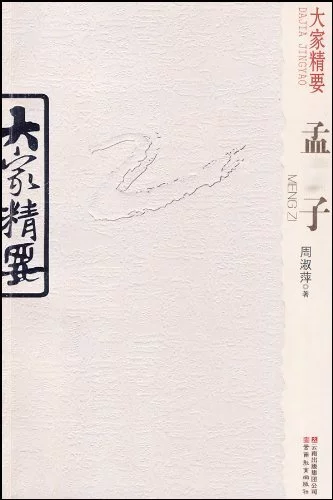 大家精要
DAJIA JINGYAO
孟子
MENG ZI
周淑萍◎著
大家精要
云南出版集团公司
云南教育出版社